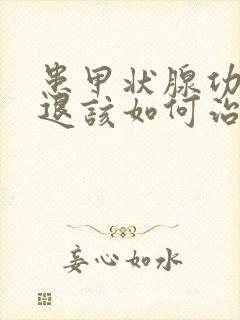 患甲状腺功
退该如何治
妄心如水